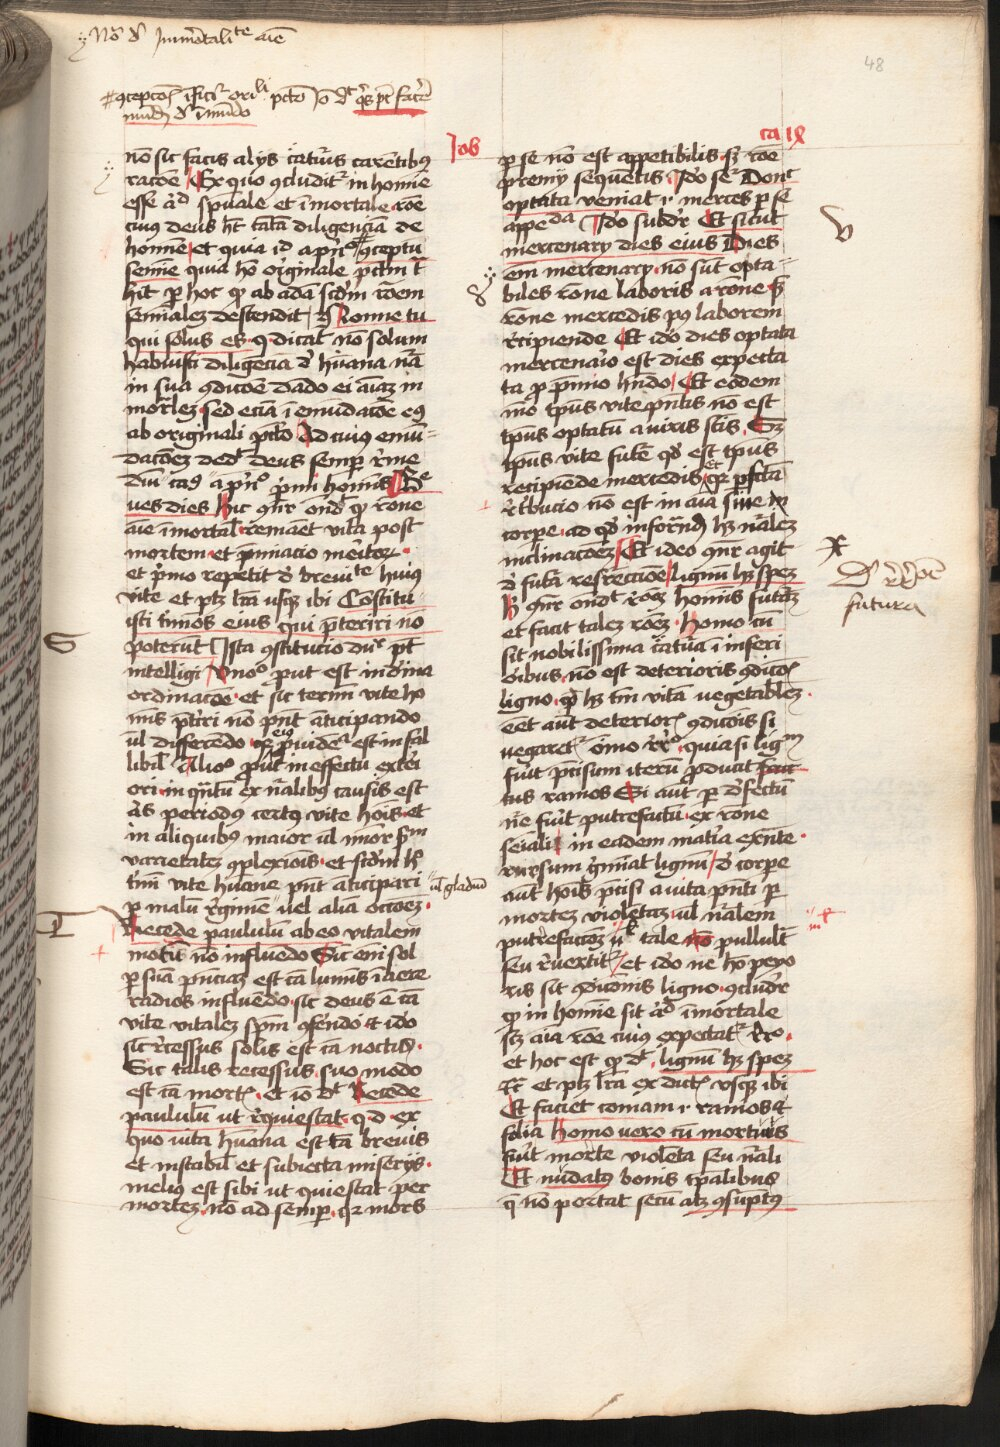 No d' Immortalite aie
48
# ꝯcepcoes ificit orili pcto Io dt qs pt facere
mudu d' imudo
Job
ca ix
no sic facis alys catuis carentibus
racoe Ex quo ꝯcludit in homie
esse ad spuale et imortale roe
cuius deus ht tata diligencia de
homie et quia id a pn° # ꝯceptu
semie quia ho originale pctm
hit per hoc quod ab ada scdm roem
semialez descendit Nonne tu
qui solus es q dicat no solum
habuisti diligencia de huana na
in sua ꝯdicoe dado ei aiaz in
mortalez sed ecia i emudacoe eius
ab originali pcto Ad cuius emu=
dacoez dedt deus semper
dui cad a pn° primi homis Bre
ues dies Hic qnr ondt quod roe
aie imortal remaet vita post
mortem et pmiacio meritoꝝ
et primo repetit de breuite huius
vite et ptz lra usque ibi Costitu
isti tmos eius qui preteriri no
S
poterut Ista ꝯstitucio dur pt
intelligi Uno° prout est in diuia
ordinacoe et sic termi vite ho
mis ptiri no pnt aticipando
ul differendo qr eius puidea est infal
libil Alio° prout in effectu exteri
ori in qntu ex nalibus causis est
cers periodus certus vite hois et
in aliquibus maior ul mior scdm
varietatez ꝯplexiois et scdm hoc
tmi vite huane pnt aticipari
ul gladiu
per malu regime uel alia occoez
T
Recede paululu ab eo vitalem
motu no influedo Sic eni sol
per sua pnciaz est ca luminis i aere
radios influedo sic deus e ca
vite vitalez spm ꝯferedo et ido
sic recessus solis est ca noctis
Sic talis recessus suo modo
est ca mortis et io dt Recede
paululu ut requiescat q d ex
quo vita huana est ta breuis
et instabil et subiecta miserys
melius est sibi ut quiescat per
mortez no ad semper qr mors
per se no est appetibilis sed roe
premy sequetis Ido ser Donec
optata veniat i merces per se
appeda Ido subdr Et sicut
V
mercenary dies eius Dies
em mercenary no sut opta=
biles roe laboris a roe sed
roe mercedis post laborem
recipiende Et ido dies optata
mercenario est dies expecta
ta pro pmio hndo Et eodem
mo tpus vite pntis no est
tpus optatu a viris sctis Sed
tpus vite future quod est tpus
recipiede mercedis et qr perfecta
retribucio no est in aia sine
corpe ad quod inforandu hz nalez
inclinacoez Et ideo qnr agit
X
De resureccoe
futura
de futa resreccioe lignu hz spez
Hic qnr ondt roez homis futuraz
et facit talez roez Homo cu
sit nobilissima catura i inferi
oribus no est deterioris ꝯdicois
ligno quod hz tm vita vegetabilez
eet aut deterioris ꝯdicois si
negaretur omo rr° quia si lignum
fuit precisum iteru producit
tus ramos Si aut per defectu
ne fuit putrefactu ex roe
seiali in eadem matia exnte
rursum gmiat lignu de corpe
aut hois pcisi a vita pnti per
mortez violetaz ul nalem
putrefaccoez no tale no pullulet
seu reuertitur et ido ne ho peyo
ris sit ꝯdiciois ligno ꝯcludr
quod in homie sit ad imortale
scz aia roe cuius expectatur Rr°
et hoc est quod dt lignu hz spez
et ptz lra ex dictis usque ibi
Et faciet comam i ramos et
folia Homo vero cu mortuus
fuit morte violeta seu nali
Et nudatus bonis tpalibus
que no portat secu atz ꝯsuptus